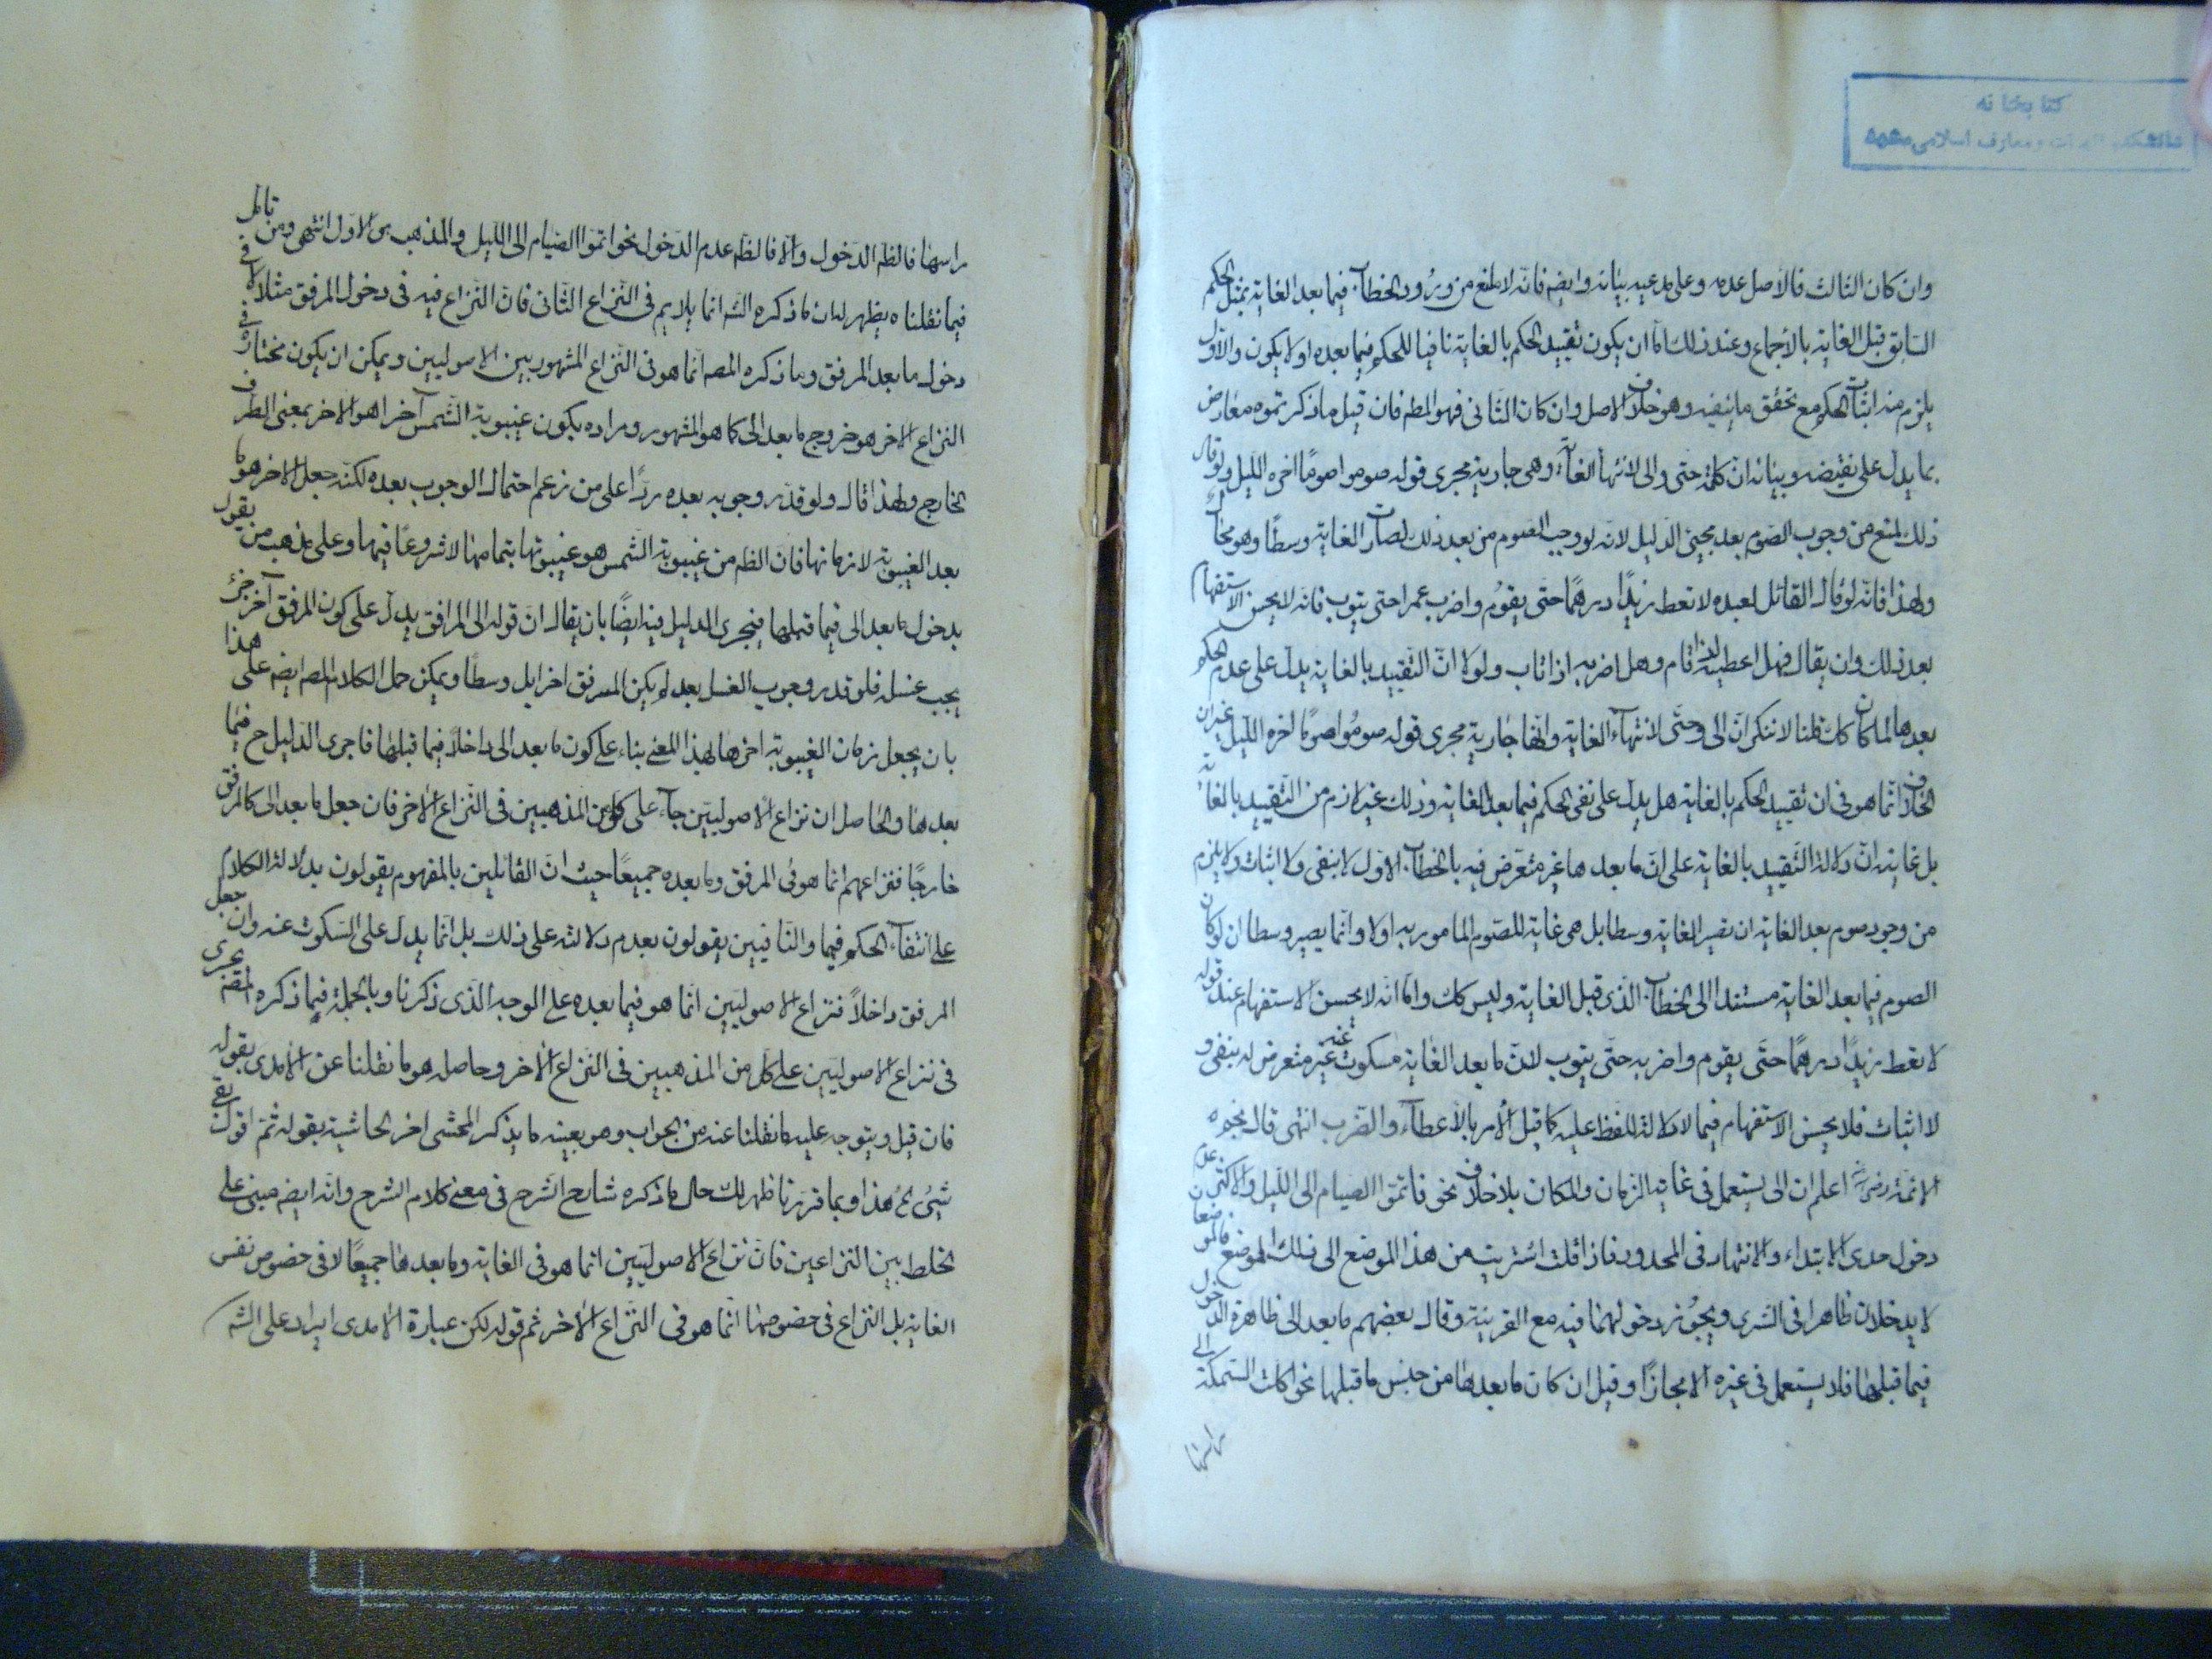 كتابخانه
دانشكده الهيات ومعارف اسلامى مشهد
وان كان الثالث فالاصل عدمه وعلى مدعيه بيانه وايضه فانه لا مانع من ورود الخطاب فيما بعد الغاية بمثل الحكم
السابق قبل الغاية بالاجماع وعند ذلك اما ان يكون تقييد الحكم بالغاية نافيا للحكم فيما بعده اولا يكون والاول
يلزم منه اثبات الحكم مع تحقق ما ينفيه وهو خلاف الاصل وان كان الثانى فهو المطه فان قيل ما ذكرتموه معارض
بما يدل على نقيضه وبيانه ان كلمة حتى والى لانتهاء الغاية وهى جارية مجرى قوله صوموا صوما اخره الليل ولو قال
ذلك لمنع من وجوب الصوم بعد مجيئ الدليل لانه لو وجب الصوم من بعد ذلك لصارت الغاية وسطا وهو محال
ولهذا فانه لو قال القائل لعبده لا تعط زيدا درهما حتى يقوم واضرب عمرا حتى يتوب فانه لا يحسن الاستفهام
بعد ذلك وان يقال فهل اعطيه اذا قام وهل اضربه اذا تاب ولولا ان التقييد بالغاية يدل على عدم الحكم
بعدها لما كان كك قلنا لا ننكر ان الى وحتى لانتهاء الغاية وانها جارية مجرى قوله صوموا صوما اخره الليل غير ان
الخلاف انما هو فى ان تقييد الحكم بالغاية هل يدل على نفى الحكم فيما بعد الغاية وذلك غير لازم من التقييد بالغاية
بل غايته ان دلالة التقييد بالغاية على ان ما بعدها غير متعرض فيه بالخطاب الاول لا بنفى ولا اثبات ولا يلزم
من وجود صوم بعد الغاية ان تصير الغاية وسطا بل هى غاية للصوم المامور به اولا وانما يصير وسطا ان لو كان
الصوم فيما بعد الغاية مستندا الى الخطاب الذى قبل الغاية وليس كك واما انه لا يحسن الاستفهام عند قوله
لا تعط زيدا درهما حتى يقوم واضربه حتى يتوب لان ما بعد الغاية مسكوت عنه غير متعرض له بنفى و
لا اثبات فلا يحسن الاستفهام فيما لا دلالة للفظ عليه كما قبل الامر بالاعطاء والضرب انتهى قال نجم
الائمة رضى اعلم ان الى يستعمل فى غاية الزمان والمكان بلا خلاف نحو فاتموا الصيام الى الليل والاكثر على
دخول حدى الابتداء والانتهاء فى المحدود فاذا قلت اشتريت من هذا الموضع الى ذلك الموضع فالموضعان
لا يدخلان ظاهرا فى الشرى ويجوز دخولهما فيه مع القرينة وقال بعضهم ما بعد الى ظاهره الدخول
فيما قبلها فلا يستعمل فى غيره الا مجازا وقيل ان كان ما بعدها من جنس ما قبلها نحو اكلت السمكة الى
راسها
راسها فالظه الدخول والا فالظه عدم الدخول نحو اتموا الصيام الى الليل والمذهب هو الاول انتهى ومن تامل
فيما نقلناه يظهر له ان ما ذكره الشه انما يلايم فى النزاع الثانى فان النزاع فيه فى دخول المرفق مثلا لا فى
دخول ما بعد المرفق وما ذكره المصه انما هو فى النزاع المشهور بين الاصوليين ويمكن ان يكون مختاره فى
النزاع الاخر هو خروج ما بعد الى كما هو المشهور ومراده بكون غيبوبة الشمس آخرا هو الاخر بمعنى الطرف
الخارج ولهذا قال ولو قدر وجوبه بعده ردا على من زعم احتمال الوجوب بعده لكنه جعل الاخر هو ما
بعد الغيبوبة لا زمانها فان الظه من غيبوبة الشمس هو غيبوبتها بتمامها لا شروعا فيها وعلى مذهب من يقول
بدخول ما بعد الى فيما قبلها فيجرى الدليل فيه ايضا بان يقال ان قوله الى المرافق يدل على كون المرفق آخر جزء
يجب غسله فلو قدر وجوب الغسل بعد لم يكن المرفق اخرا بل وسطا ويمكن حمل الكلام المصه ايضه على هذا
بان يجعل زمان الغيبوبة اخرها لهذا المعنى بناء على كون ما بعد الى داخلا فيما قبلها فاجرى الدليل ح فيما
بعدها والحاصل ان نزاع الاصوليين جآء على كل من المذهبين فى النزاع الاخر فان جعل ما بعد الى كالمرفق
خارجا فنزاعهم انما هو فى المرفق وما بعده جميعا حيث ان القائلين بالمفهوم يقولون بدلالة الكلام
على انتفاء الحكم فيها والنافيين يقولون بعدم دلالته على ذلك بل انما يدل على السكوت عنه وان جعل
المرفق داخلا فنزاع الاصوليين انما هو فيما بعده على الوجه الذى ذكرنا وبالجملة فما ذكره المصه يجرى
فى نزاع الاصوليين على كل من المذهبين فى النزاع الاخر وحاصله هو ما نقلنا عن الامدى بقوله
فان قيل ويتوجه عليه ما نقلنا عنه من الجواب وهو بعينه ما يذكر المحشى اخر الحاشية بقوله ثم اقول بقى
شئ ح هذا وبما قررنا ظهر لك حال ما ذكره شارح الشرح فى معنى كلام الشرح وانه ايضه مبنى على
الخلط بين النزاعين فان نزاع الاصوليين انما هو فى الغاية وما بعدها جميعا لا فى خصوص نفس
الغاية بل النزاع فى خصوصها انما هو فى النزاع الاخر ثم قوله لكن عبارة الامدى ايراد على الشه